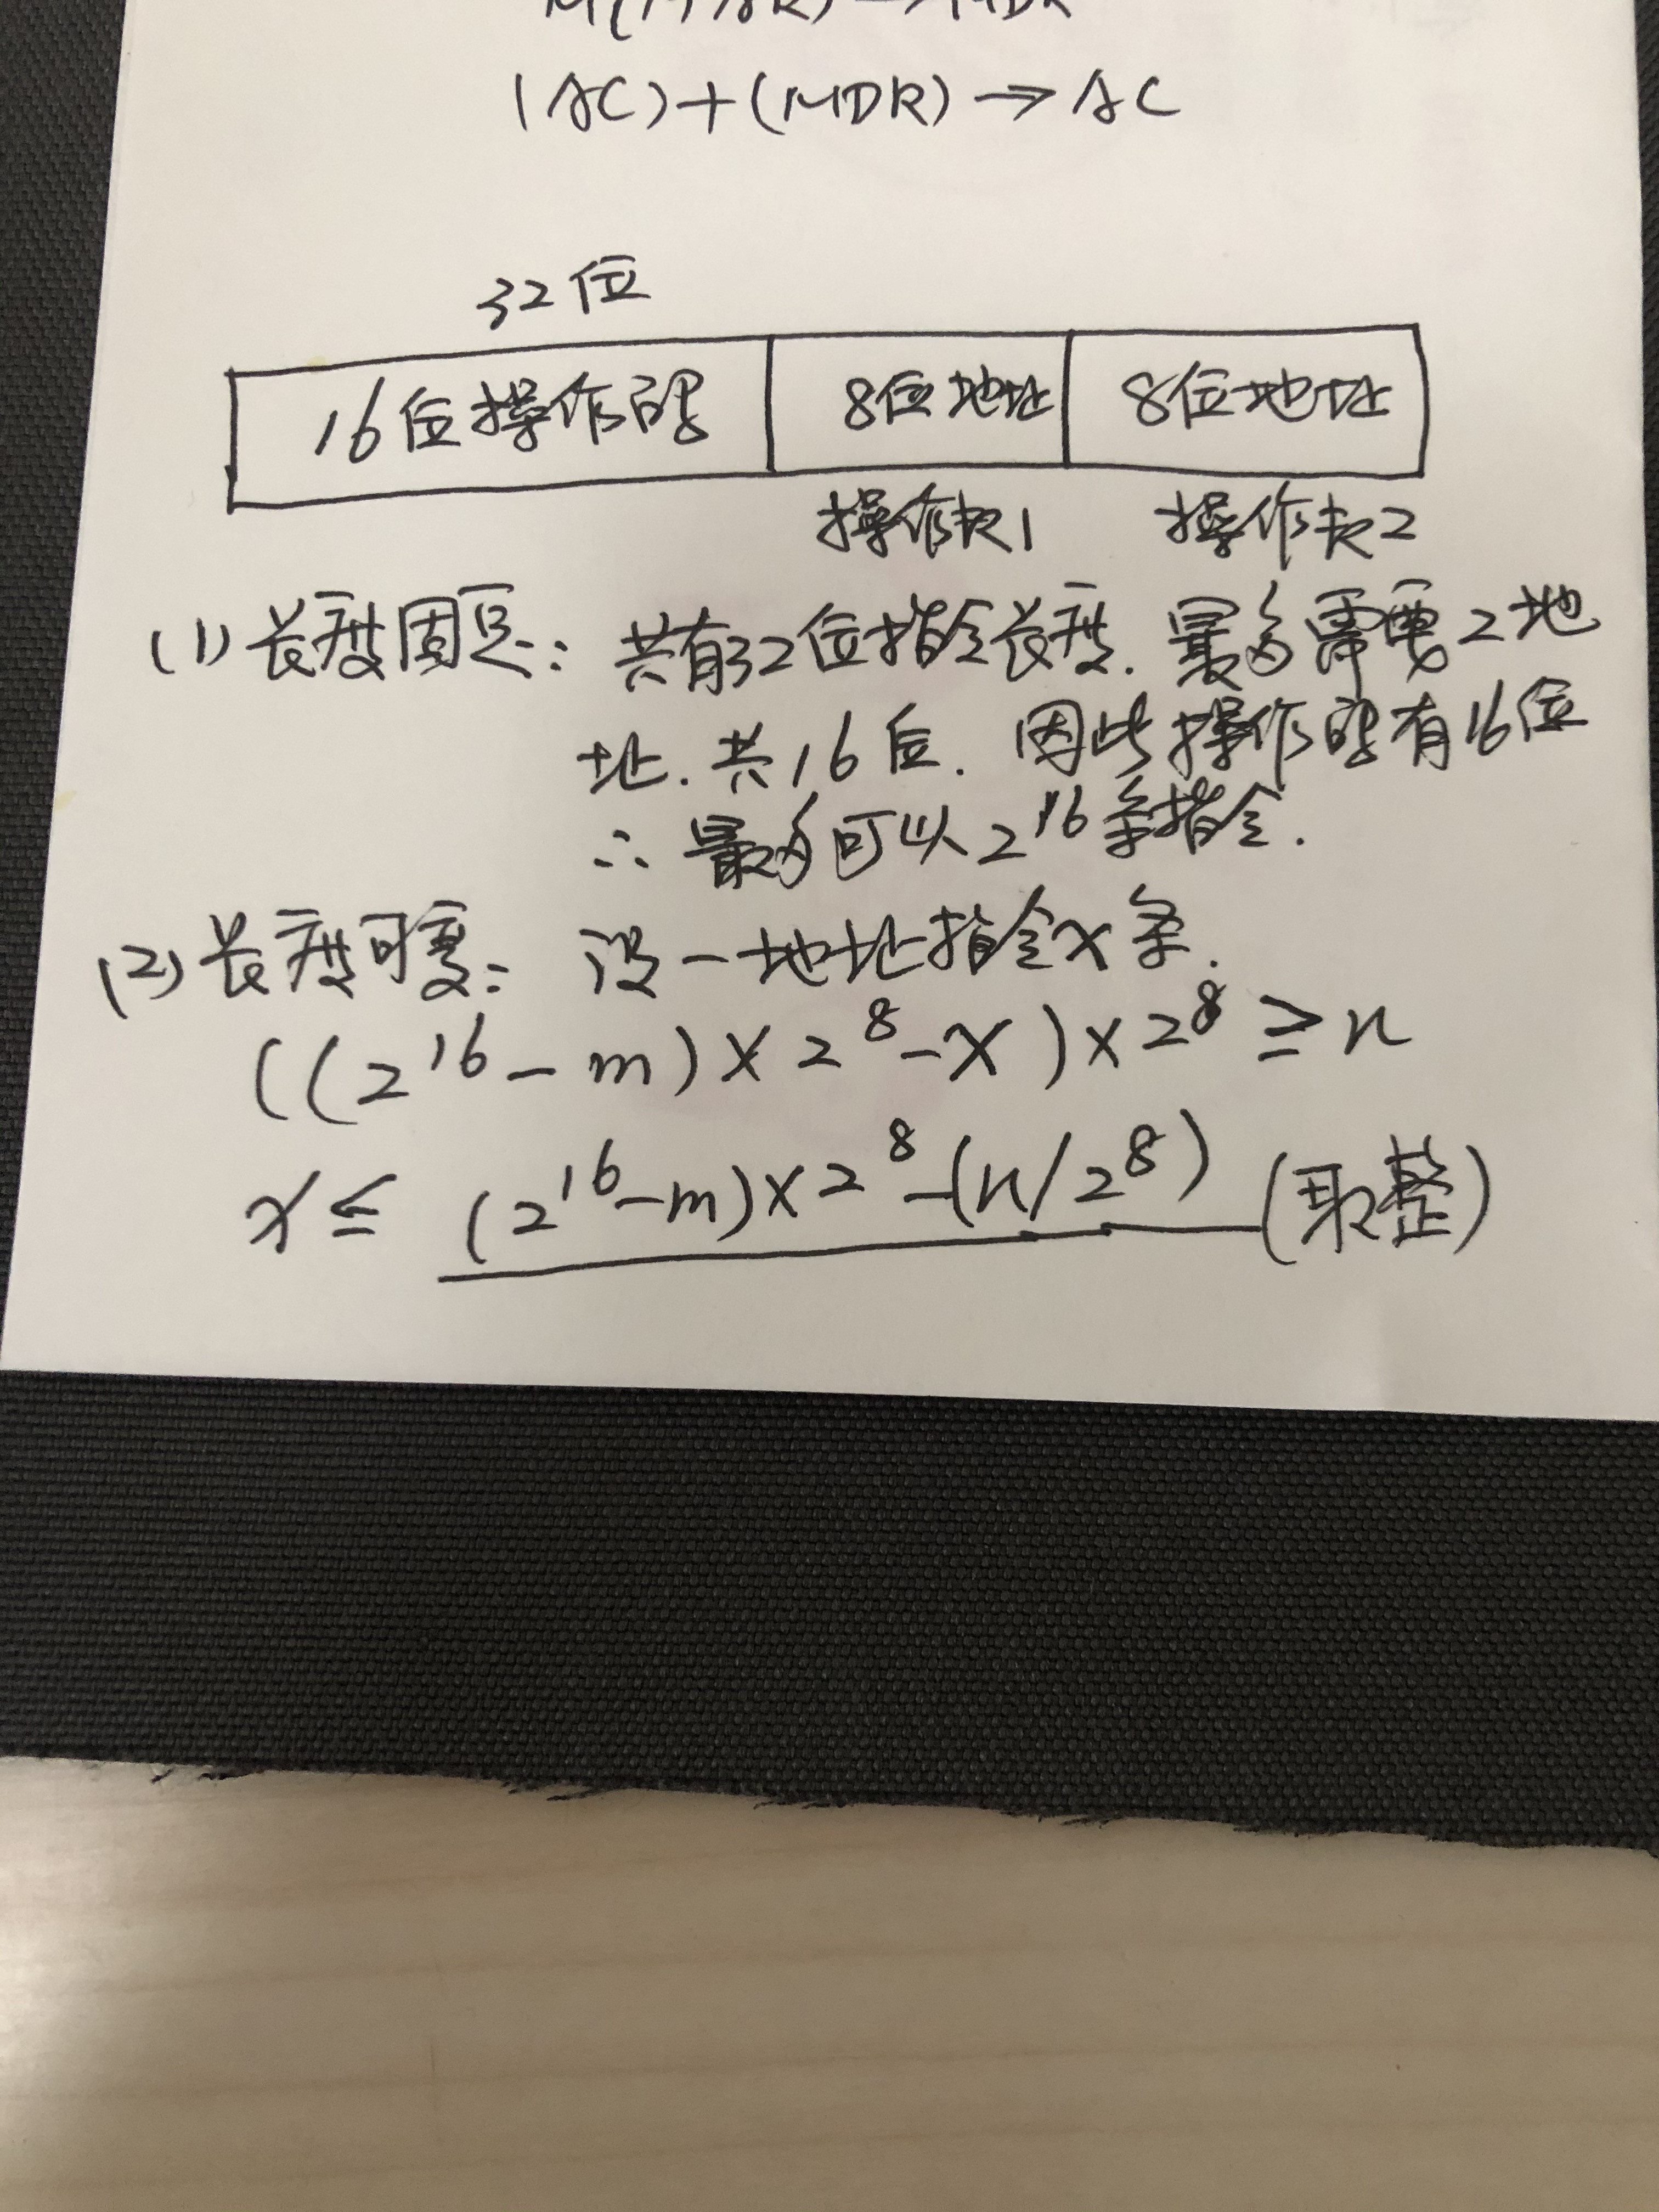 (AC)+(MDR)→AC
32位
16位操作码 8位地址 8位地址
操作数1 操作数2
(1)长度固定: 共有32位指令长度. 最多需要2地
址. 共16位. 因此操作码有16位
∴ 最多可以2^16条指令.
(2)长度可变: 设一地址指令X条.
((2^16-m)×2^8-X)×2^8≥n
X≤(2^16-m)×2^8-(n/2^8) (取整)